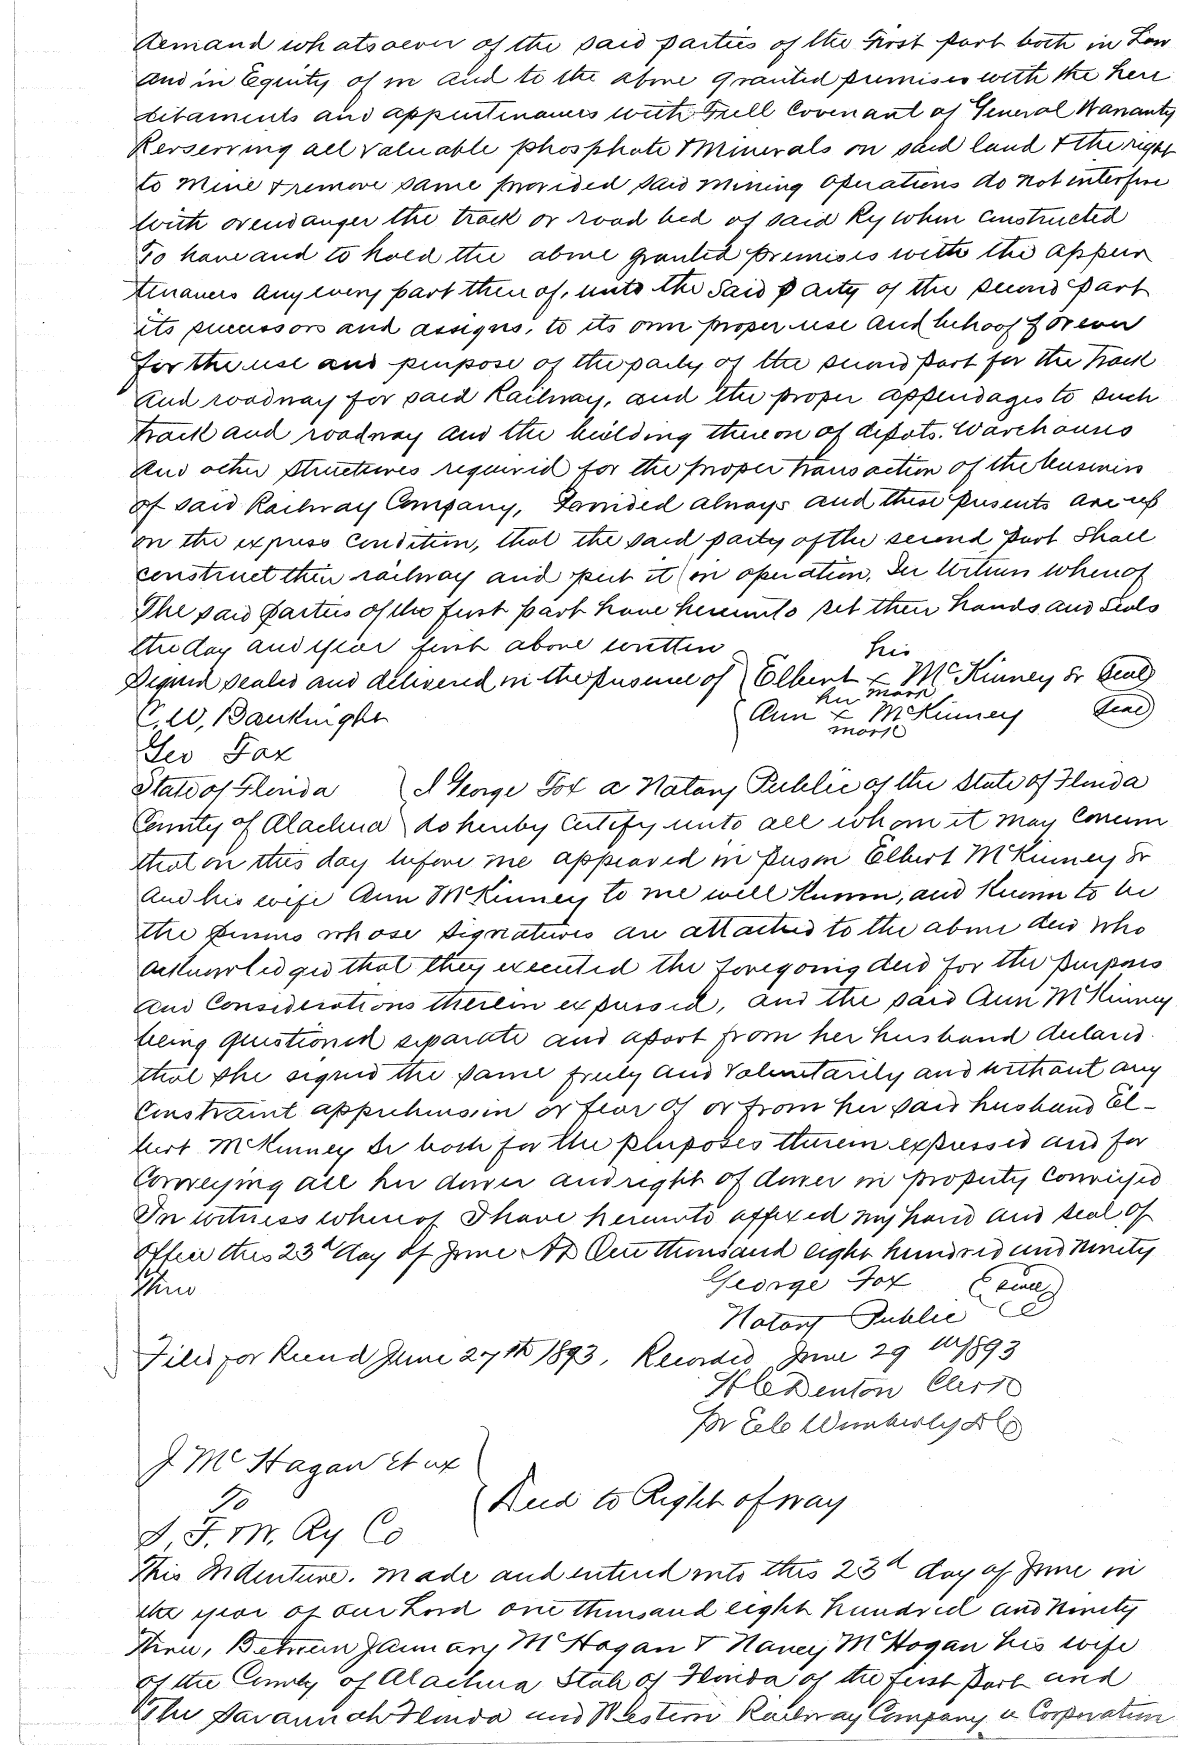 demand whatsoever of the said parties of the First part both in Law
and in Equity of in and to the above granted premises with the here
ditaments and appurtenances with Full Covenant of General Warranty
Rerserving all valuable phosphate & Minerals on said land & the right
to mine & remove same provided said mining operations do not interfere
with or endanger the track or road bed of said Ry when constructed
To have and to hold the above granted premises with the appur
tenances any every part thereof, unto the said party of the second part
its successors and assigns, to its own proper use and behoof forever
for the use and purpose of the party of the second part for the track
and roadway for said Railway, and the proper appendages to such
track and roadway and the building thereon of depots. Warehouses
and other structures required for the proper transaction of the business
of said Railway Company, Provided always and these presents are up
on the express condition, that the said party of the second part shall
construct their railway and put it in operation, In Witness whereof
The said parties of the first part have hereunto set their hands and seals
the day and year first above written
Signed sealed and delivered in the presence of
his
Elbert x McKinney Sr Seal
mark
C. W. Bauknight
her
Ann x McKinney Seal
mark
Geo Fox
State of Florida
County of Alachua
I George Fox a Notary Public of the State of Florida
do hereby certify unto all whom it may concern
that on this day before me appeared in person Elbert McKinney Sr
and his wife Ann McKinney to me well known, and known to be
the persons whose signatures are attached to the above deed who
acknowledged that they executed the foregoing deed for the purposes
and considerations therein expressed, and the said Ann McKinney
being questioned separate and apart from her husband declared
that she signed the same freely and voluntarily and without any
constraint apprehension or fear of or from her said husband El-
bert McKinney Sr both for the purposes therein expressed and for
conveying all her dower and right of dower in property conveyed
In witness whereof I have hereunto affixed my hand and seal of
office this 23d day of June AD One thousand eight hundred and ninety
three
George Fox Seal
Notary Public
Filed for Record June 27th 1893, Recorded June 29th 1893
H C Denton Clerk
Pr E C Wimberly D C
J McHagan Et ux
To
S, F. W. Ry Co
Deed to Right of way
This Indenture. made and entered into this 23d day of June in
the year of our Lord one thousand eight hundred and ninety
three, Between January McHagan & Nancy McHagan his wife
of the County of Alachua State of Florida of the first part and
The Savannah Florida and Western Railway Company a Corporation